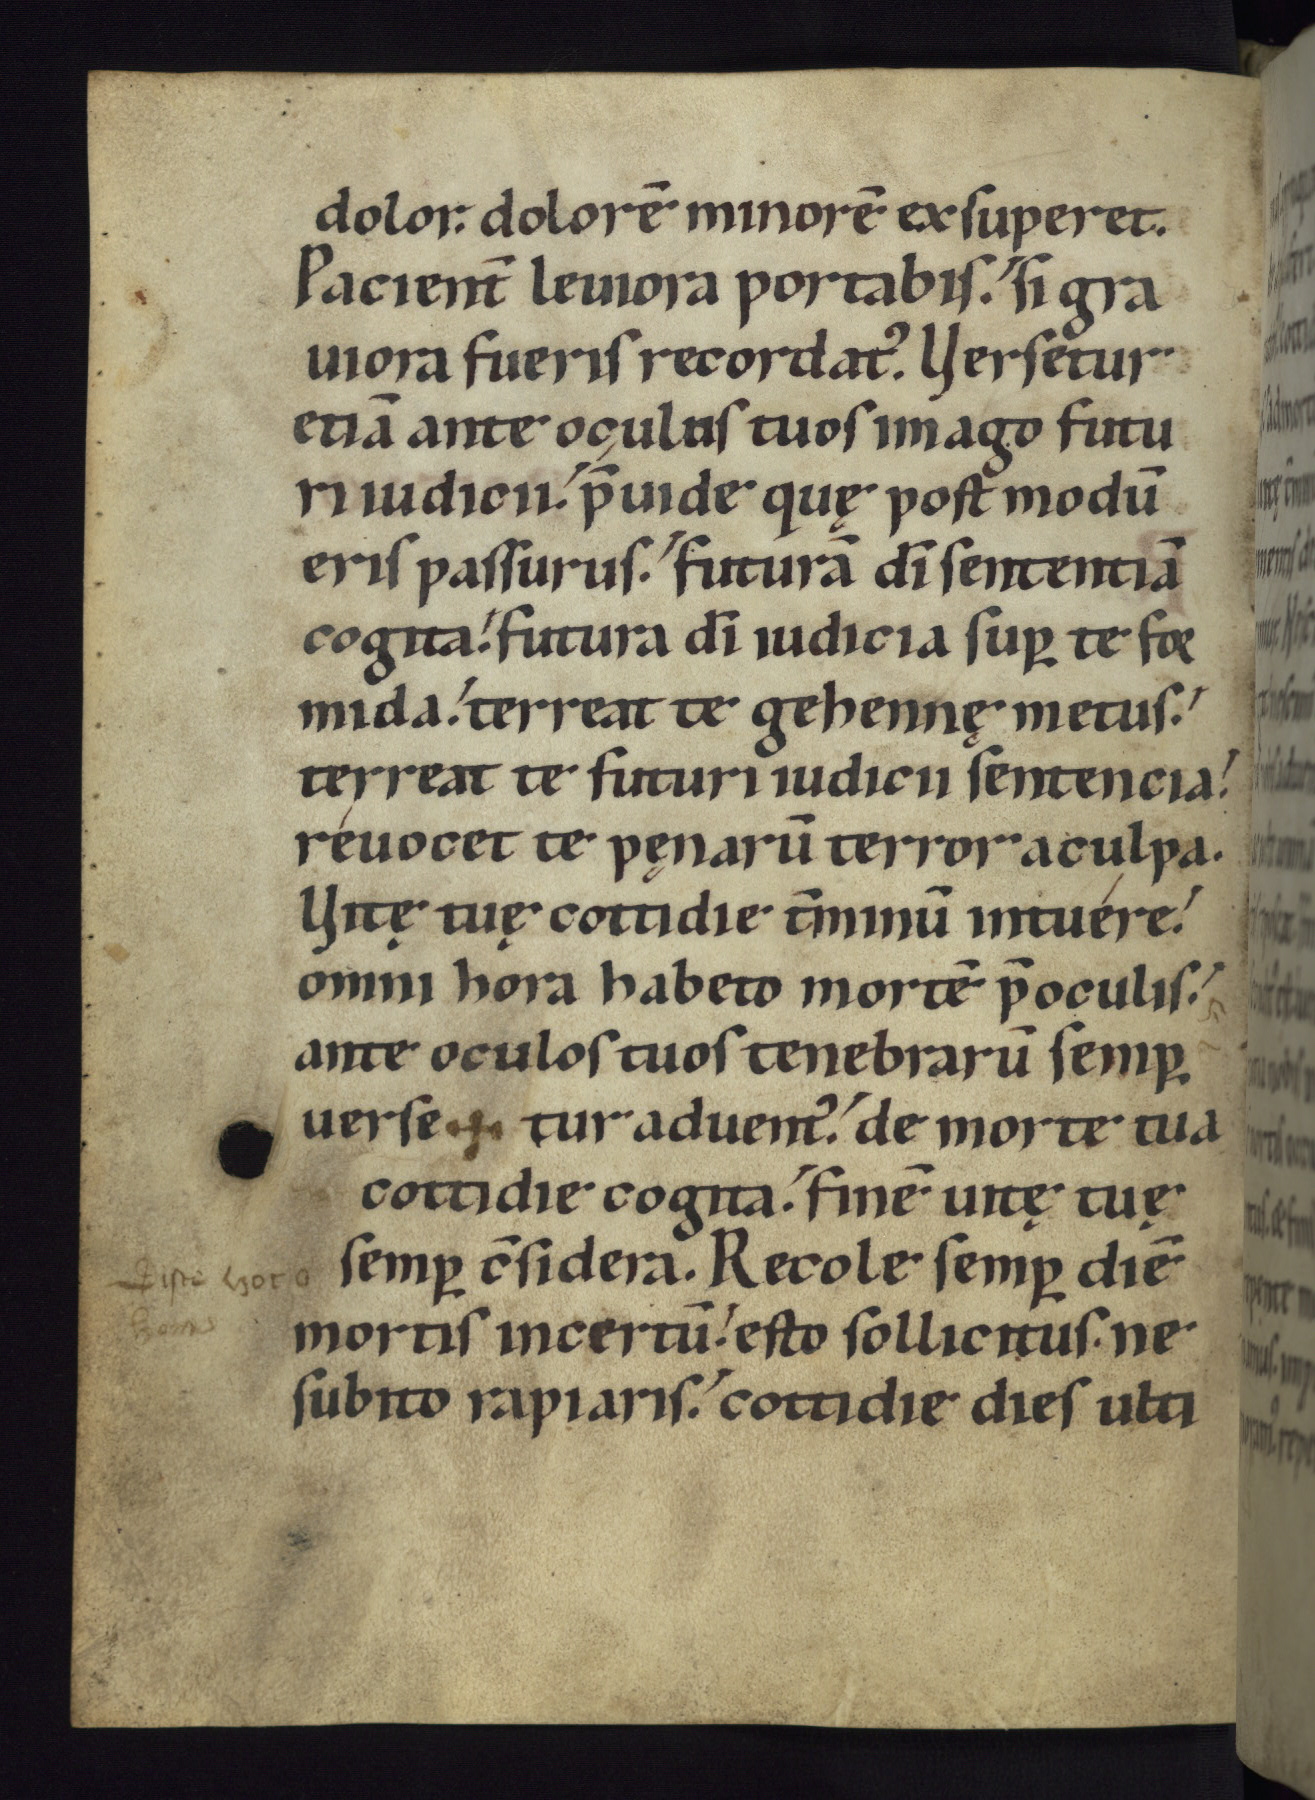 dolor. dolorē minorē exsuperet.
Pacient̄ leuiora portabis. si gra
uiora fueris recordat᾽. Versetur
etiā ante oculus tuos imago futu
ri iudicii. p̄uide quę post modū
eris passurus. futurā dī sententiā
cogita. futura dī iudicia suꝑ te for
mida. terreat te gehennę metus.
terreat te futuri iudicii sentencia.
reuocet te pęnarū terror a culpa.
Vitę tuę cottidie t̄minū intuére.
omni hora habeto mortē p̄ oculis.
ante oculos tuos tenebrarū semꝑ
uerse tur aduent᾽. de morte tua
cottidie cogita. finē uitę tuę
semꝑ c̄sidera. Recole semꝑ diē
mortis incertū. esto sollicitus. ne
subito rapiaris. cottidie dies ulti